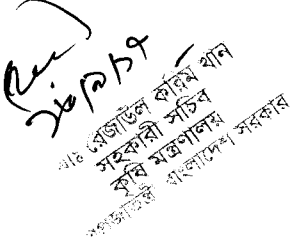 ২৮/৯/১৭
মোঃ রেজাউল করিম খান
সহকারী সচিব
কৃষি মন্ত্রণালয়
গণপ্রজাতন্ত্রী বাংলাদেশ সরকার